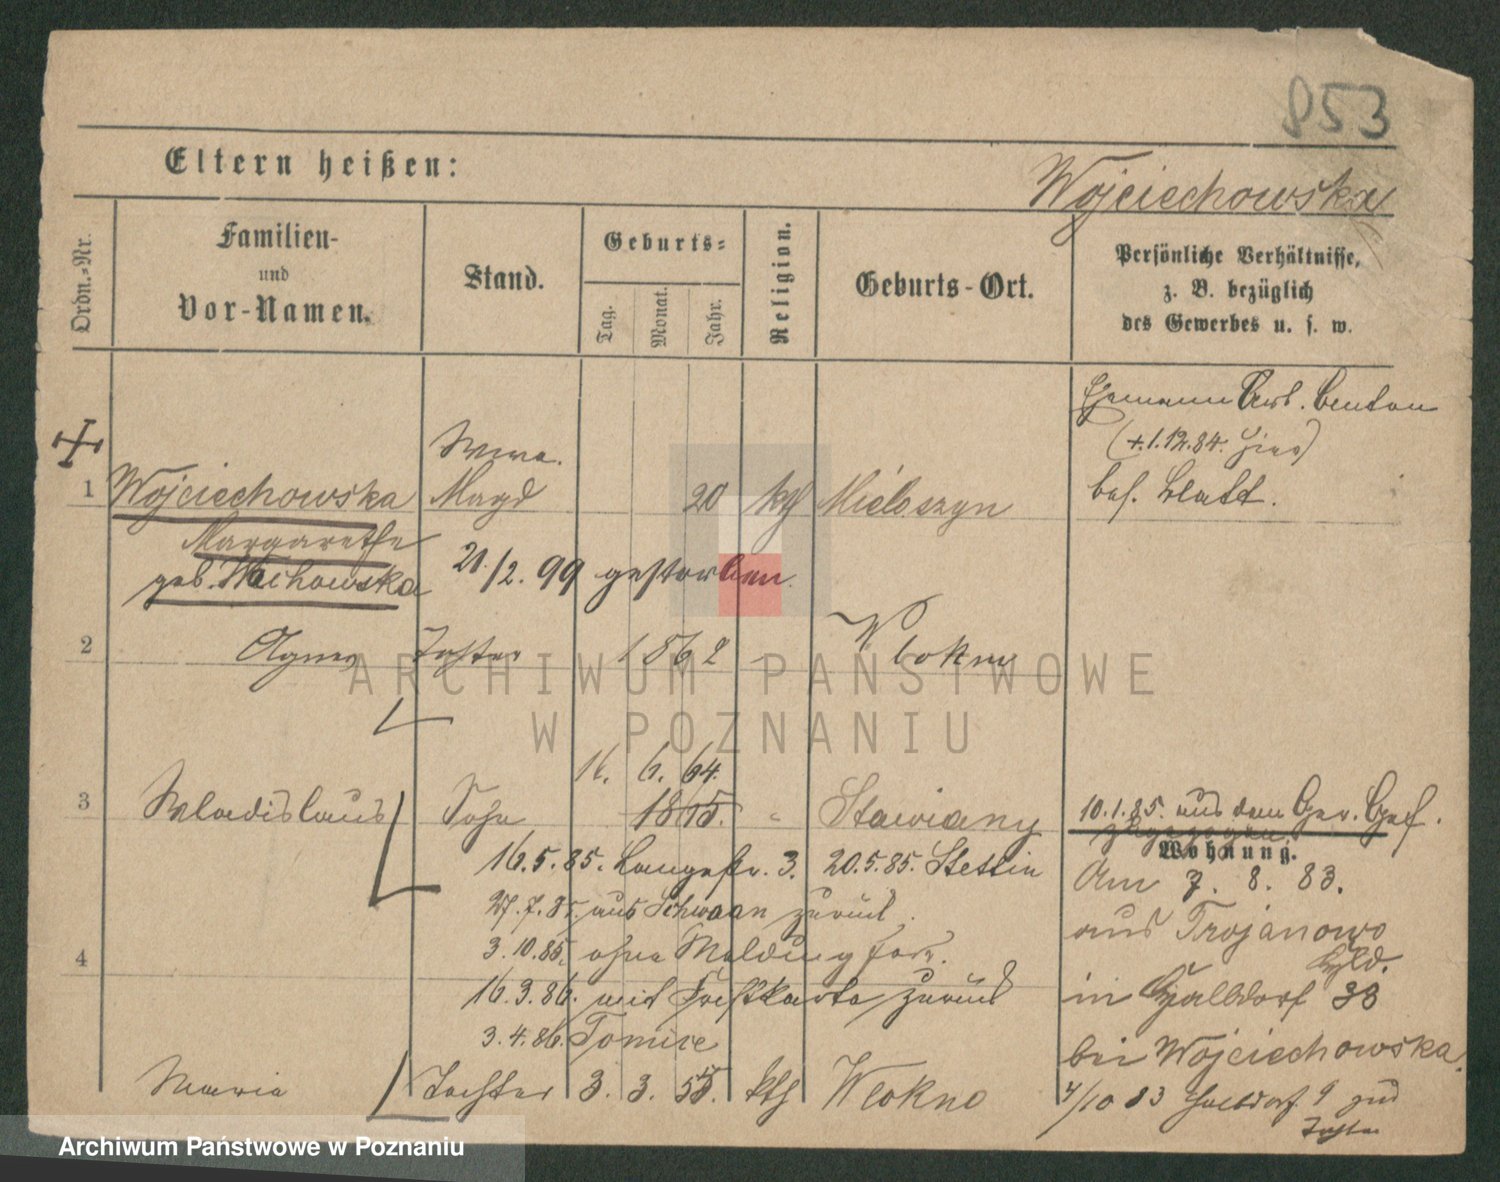 853
Eltern heißen:
Wojciechowska
Ordn.-Nr.
Familien-
und
Vor-Namen.
Stand.
Geburts-
Tag.
Monat.
Jahr.
Religion.
Geburts-Ort.
Persönliche Verhältnisse,
z. B. bezüglich
des Gewerbes u. s. w.
Ehemann Arb.
(+.1.12.84. hier)
bes. Blatt.
Wwe.
1 Wojciechowska Magd 20 kth Mieleszyn
Margarethe
geb. Wochowska
21./2. 99 gestorben.
2 Agnes Tochter 1862 - Wlokno
16. 6. 64.
3 Wladislaus Sohn 1865. " Stawiany
10.1.85. aus dem Ger. Gef.
zugezogen
Wohnung.
16.5.85. Langestr. 3. 20.5.85. Stettin
Am 7. 8. 83.
27.7.85. aus Schwaan zurück.
aus Trojanowo
3.10.85. ohne Meldung fort.
4
16.3.86. mit zurück
in Halldorf 38
3.4.86. Tomice
bei Wojciechowska.
Maria Tochter 3. 3. 55. kth Wlokno
4/10 83 Halldorf 9 zur
Tochter
ARCHIWUM PAŃSTWOWE
W POZNANIU
Archiwum Państwowe w Poznaniu